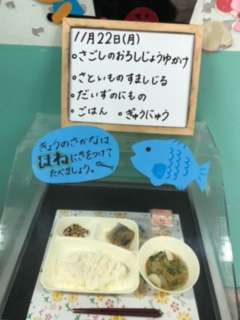 11月22日(月)
○さごしのおろしじょうゆかけ
○さといものすましじる
○だいずのにもの
○ごはん ○ぎゅうにゅう
きょうのさかなは
ほねにきをつけて
たべましょう。